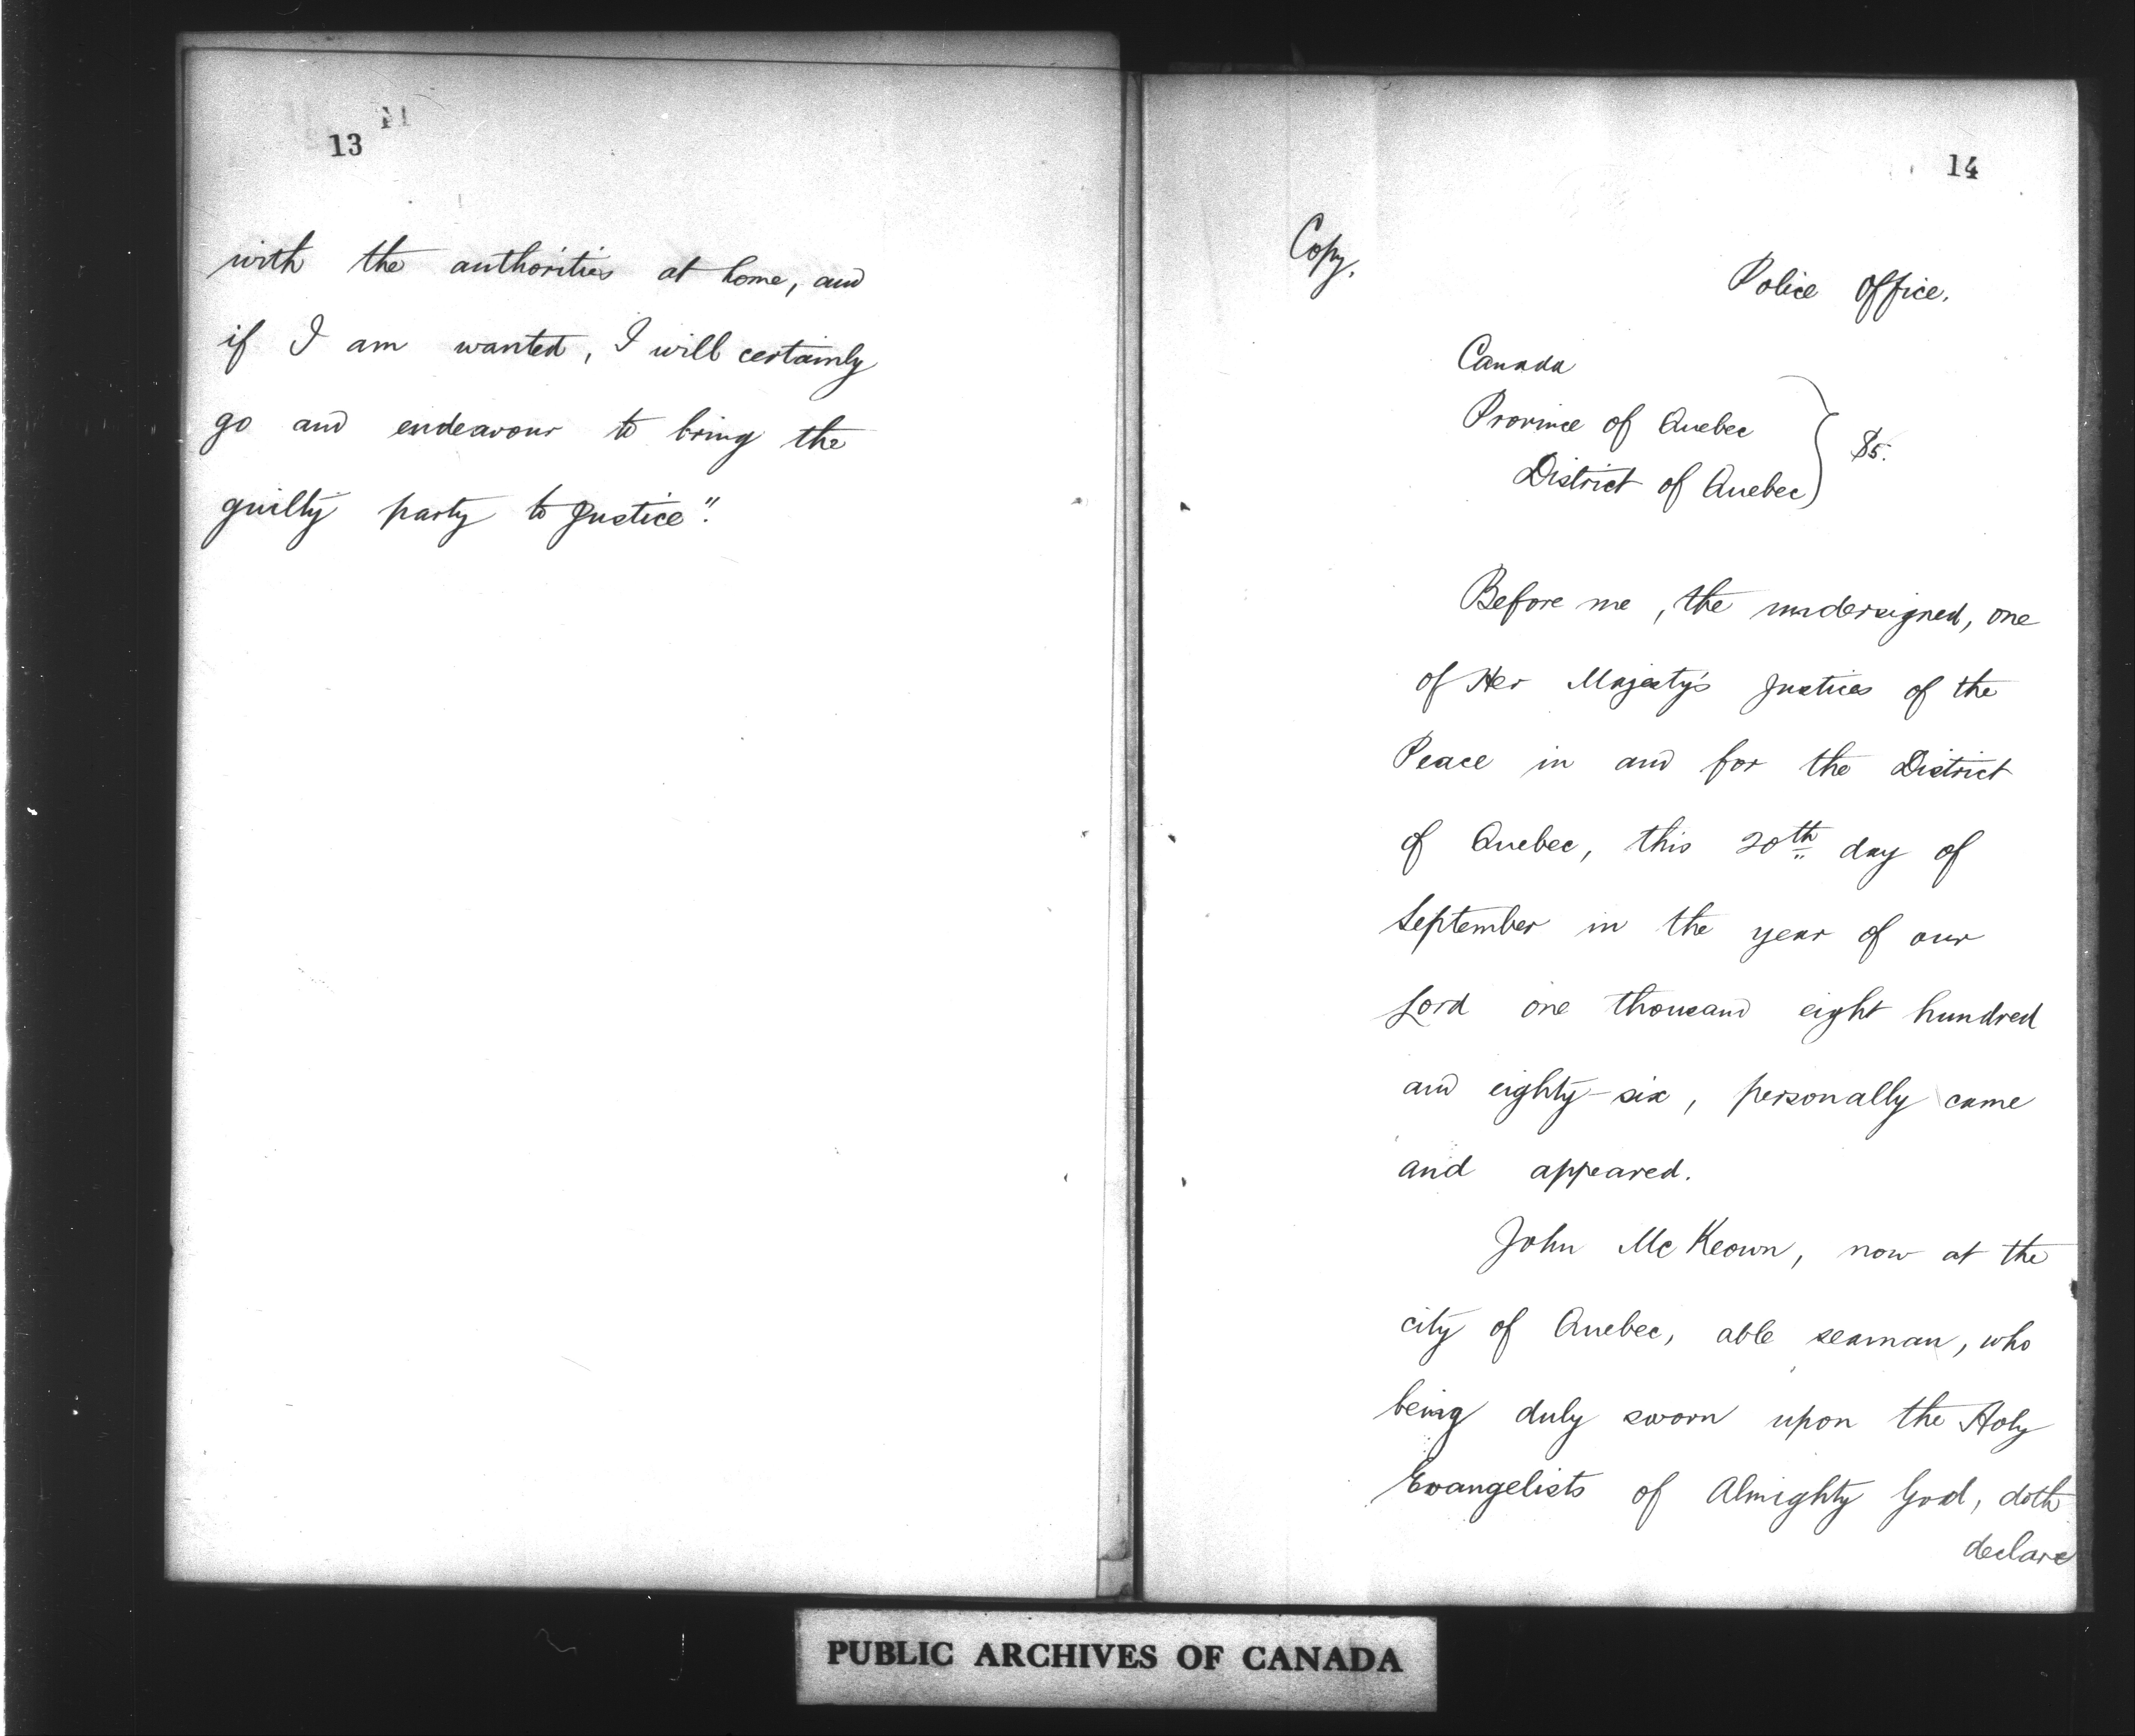 13
with the authorities at home, and
if I am wanted, I will certainly
go and endeavour to bring the
guilty party to Justice".
14
Copy.
Police Office.
Canada
Province of Quebec
District of Quebec
Before me, the undersigned, one
of Her Majesty's Justices of the
Peace in and for the District
of Quebec, this 20th day of
September in the year of our
Lord one thousand eight hundred
and eighty-six, personally came
and appeared.
John McKeown, now at the
city of Quebec, able seaman, who
being duly sworn upon the Holy
Evangelists of Almighty God, doth
declare
PUBLIC ARCHIVES OF CANADA